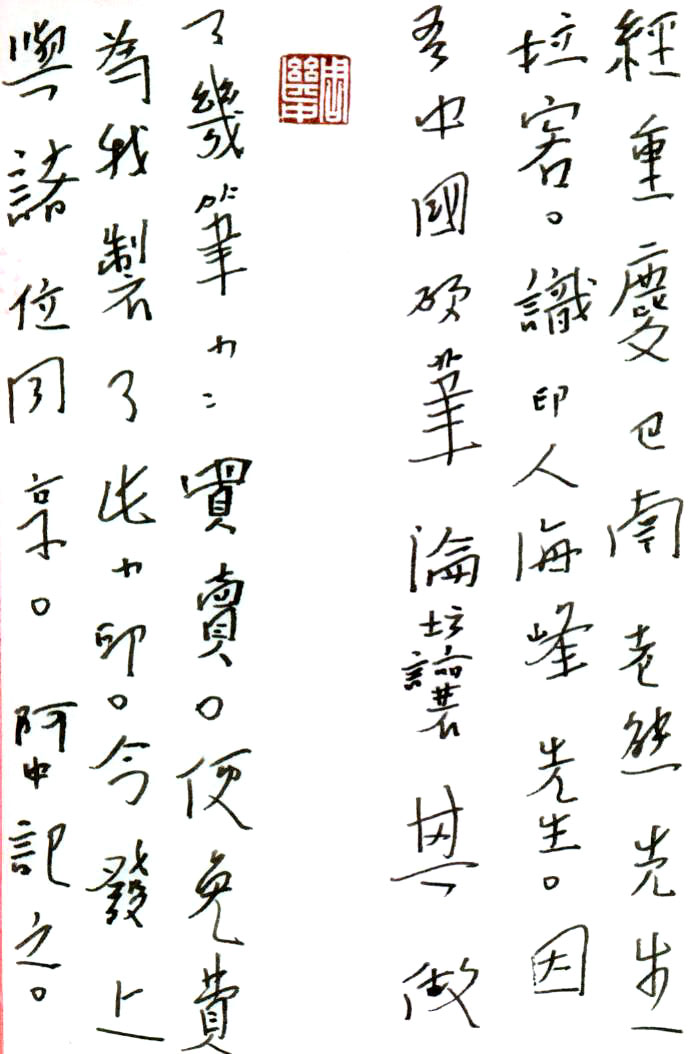 經重慶巴南老熊先生
拉客。識印人海峰先生。因
吾中國硬筆論坛讓其做
了幾筆小〻買賣。便免費
為我製了此小印。今發上
與諸位同享。阿中記之。